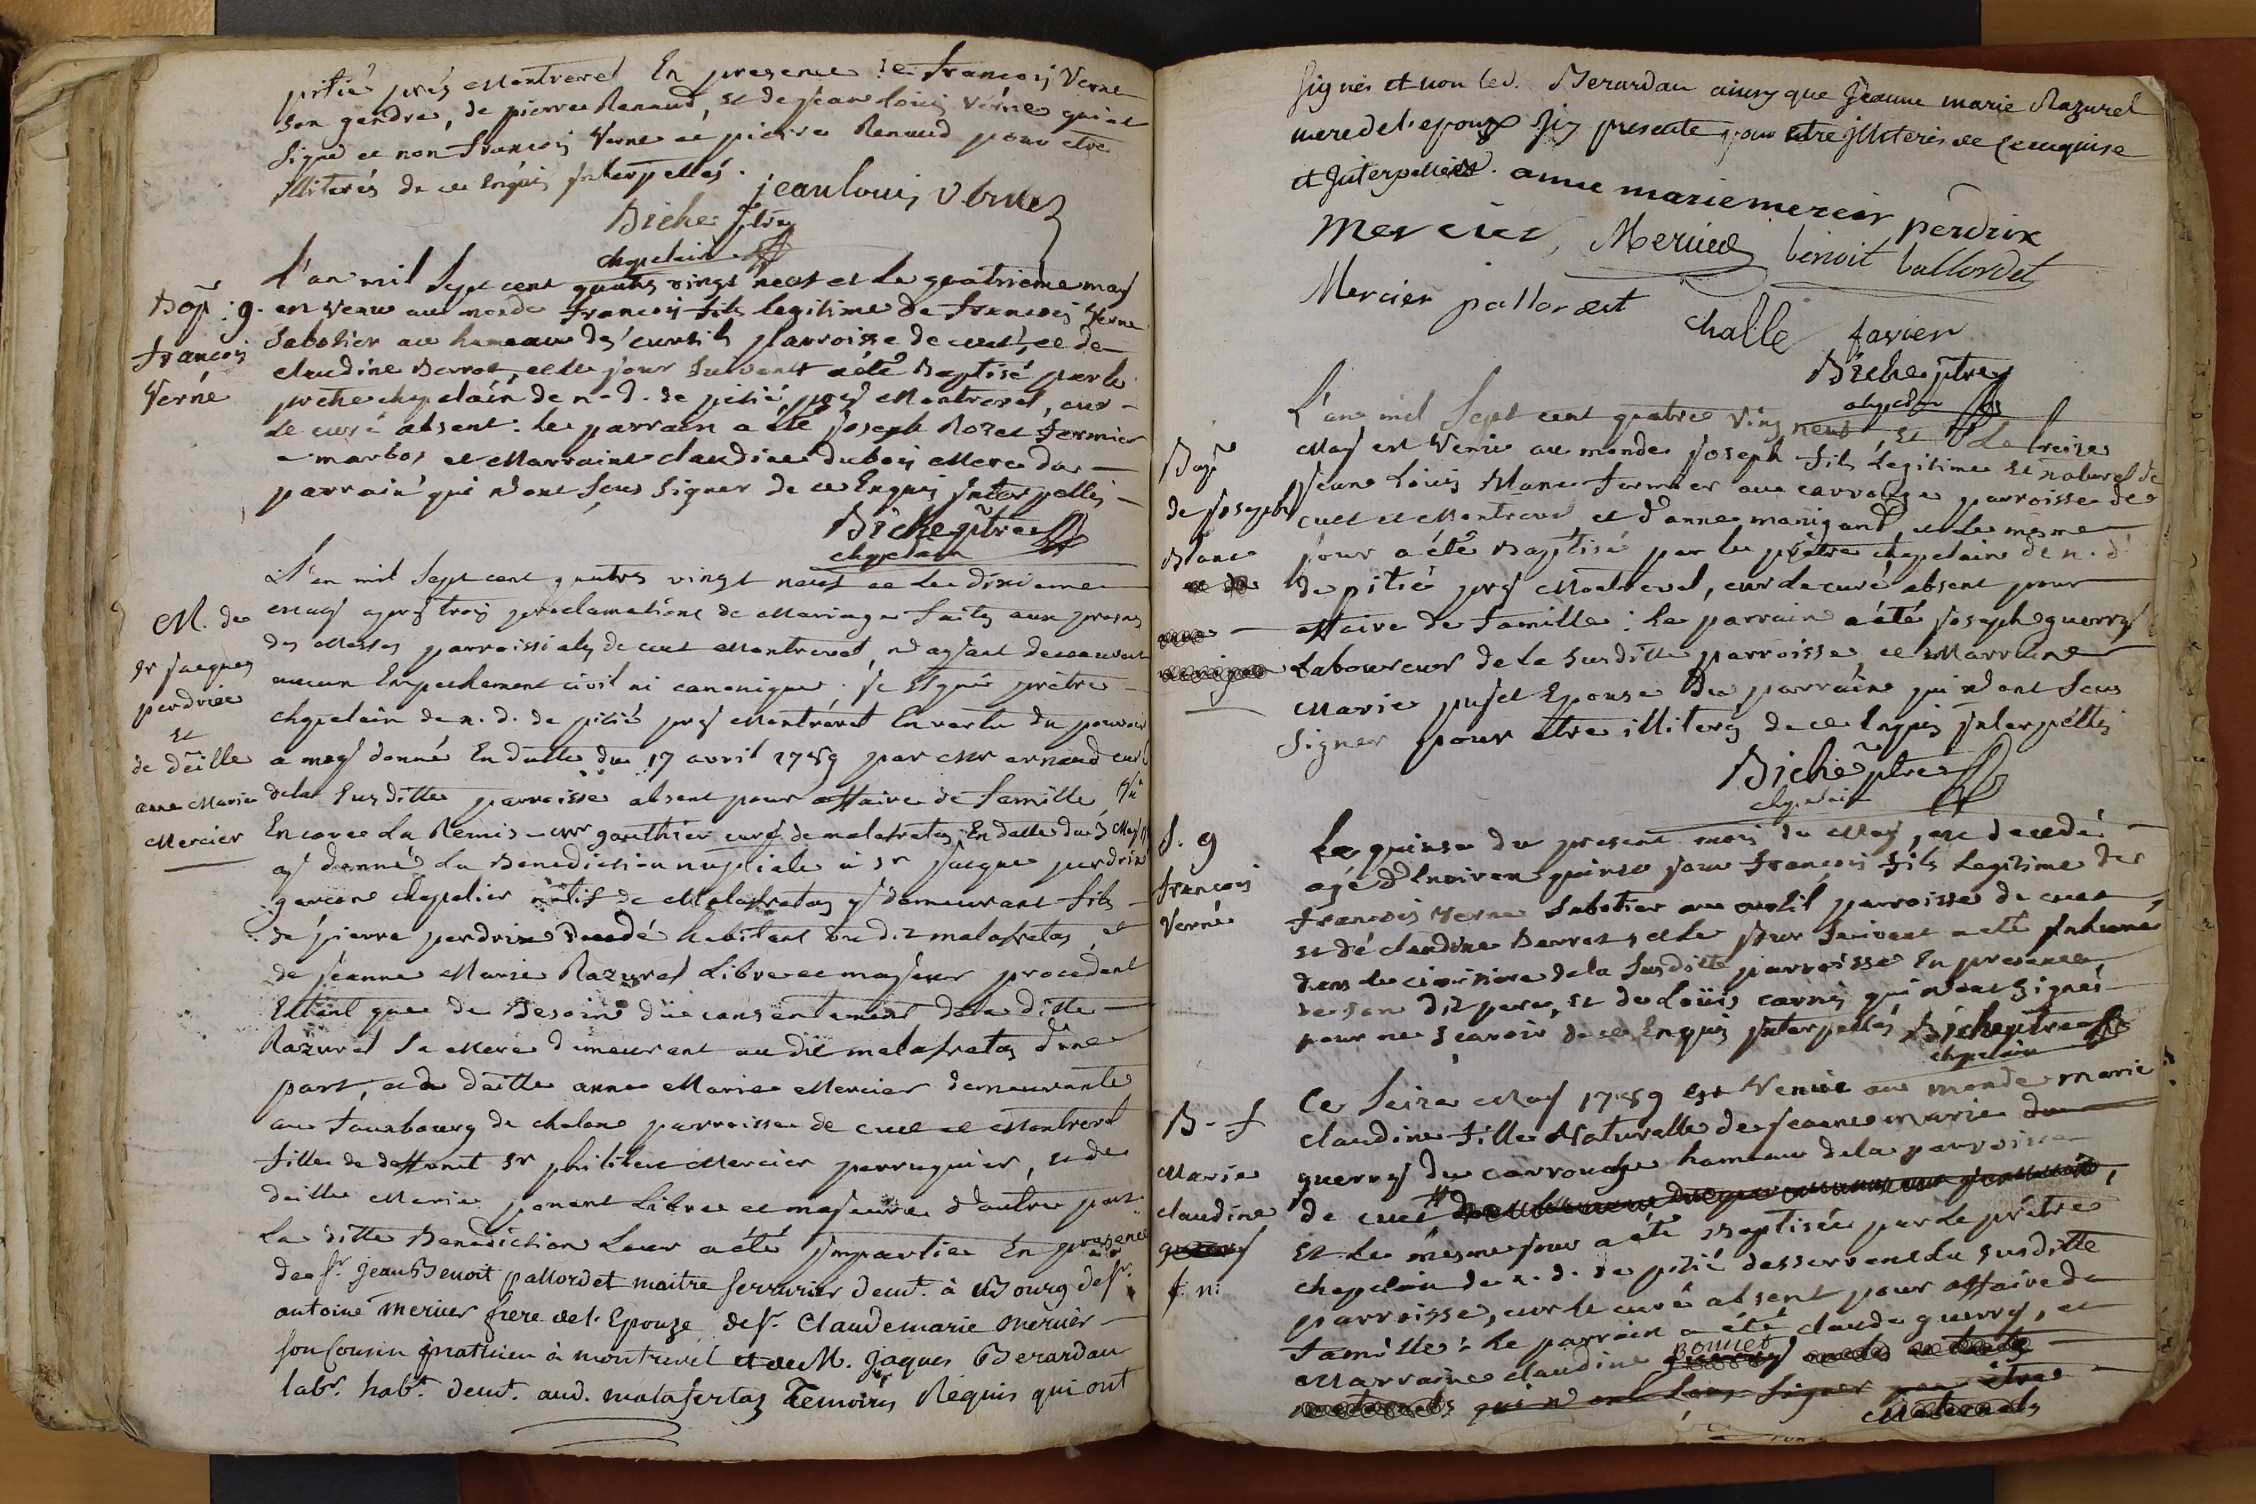 pitié près Montrevel En presence de françois Verne
son gendre, de pierre Renaud, et de jean loüis Verne qui a
signé et non françois Verne et pierre Renaud pour etre
illiterés de ce Enquis jnterpellés.
jean louis Verne
Biche ptre
chapelain
Bap : g.
francois
Verne
L'an mil sept cent quatre vingt neuf et le quatrieme may
en venu au monde françois fils legitime de francois Verne
Sabotier au hameau des curtils parroisse de cuet, et de
claudine Berrot, et le jour suivant a été Baptisé par le
prêtre chapelain de n. d. de pitié, près Montrevel, cur
le curé absent : le parrain a été joseph Rozet fermier
a marbos, et Marraine claudine dubois Mere du
parrain qui n'ont sçus signer de ce Enquis jnterpellés
Biche ptre
chapelain
M. de
sr jacques
perdrix
et
de dèlle
anne Marie
Mercier
L'an mil sept cent quatre vingt neuf et le dixieme
may après trois proclamations de Mariage faites aux prosnes
des Messes parroissiales de cuet Montrevel, n'ayant decouvert
aucun Empechement civil ni canonique je soussigné prêtre
chapelain de n. d. de pitié près Montrevel En vertu du pouvoir
a moy donné En datte du 17 avril 1789 par Mr arnaud curé
de la susditte parroisse absent pour affaire de famille,
Encore La Remis mr gauthier curé de malafretas En datte du 3 May
ay donné la Benediction nuptiale à sr jacque perdrix
garçon chapelier natif de Malafretas y demeurant fils
de pierre perdrix decedé habitant du dit malafretas, et
de jeanne Marie Razurel Libre et majeur procedent
Entant que de Besoin du consentement de la ditte
Razurel sa Mere demeurant au dit malafretas d'une
part, et de dèlle anne Marie Mercier demeurante
au fauxbourg de chalons parroisse de cuet et Montrevel
fille de deffunt sr philibert Mercier perruquier, et de
dèlle Marie ponent Libre et majeure d'autre part.
La ditte Benediction Leur a été jmpartie En presence
de sr. jean Benoit pallordet maitre serrurier demt. à Bourg de sr.
antoine mercier frere de l'Epouze de sr. Claudemarie mercier
son Cousin à montrevel et de M. jaques Berardan
labr. habt. demt. aud. malafertaz Temoins Requis qui ont
signés et non led. Berardan ainsy que jeanne marie Razurel
mere de l'epoux ici presente pour etre jlliterés de ce enquise
et jnterpellées. anne marie mercier perdrix
mercier, Mercier benoit ballordet
Mercier pallordet
Challe favier
Biche ptre
chapelain
Bap
de joseph
Blanc
L'an mil sept cent quatre ving neuf, et le treize
May est Venu au monde joseph fils Legitime et naturel de
jean loüis Blanc fermier au carrouge parroisse de
cuet et Montrevel, et d'anne manigand, et le mesme
jour a été Baptisé par le prêtre chapelain de n. d.
de pitié près Montrevel, cur le curé absent pour
affaire de famille : le parrain a été joseph guerry
Laboureur de la susditte parroisse, et Marraine
Marie pusel Epouse du parrain qui n'ont sçus
signer pour etre illiterés de ce Enquis jnterpéllés
Biche ptre
chapelain
S. g
francois
Verné
Le quinse du present mois de May, est decedé
agé d'Environ quinse jour françois fils Legitime de
francois Verne Sabotier au curtil parroisse de cuet,
et de claudine Berrot, et le jour suivant a été jnhumé
dans le cimitiere de la susditte parroisse En presence
de son dit pere, et de Loüis carris qui n'ont signés
pour ne sçavoir de ce Enquis jnterpellés Biche ptre
chapelain
B. f
Marie
claudine
guerry
f. n:
Ce seize May 1789 est Venue au monde marie
claudine fille Naturelle de jeanne marie
guerry du carrouge hameau de la parroisse
de cuet
et le mesme jour a été Baptisée par le prêtre
chapelain de n. d. de pitié desservent la susditte
parroisse, cur le curé absent pour affaire de
famille : le parrain a été claude guerry, et
Marraine claudine Bonnet
qui n'ont sçus signer pour être